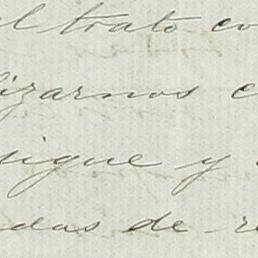 el trato co
lizarnos c
sigue y
das de re